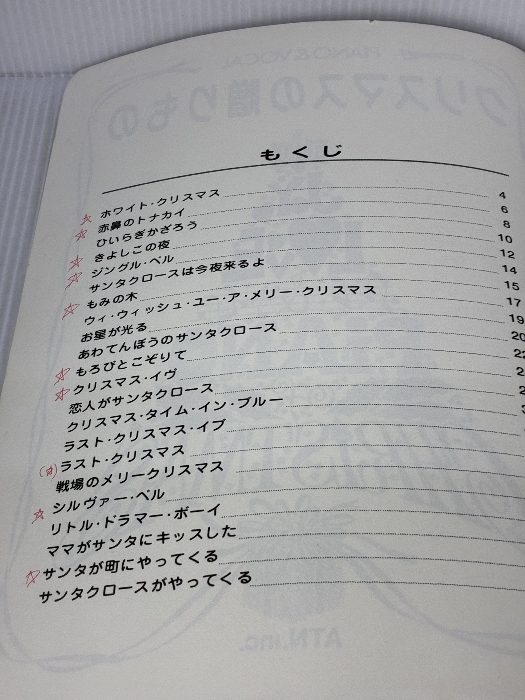 もくじ
ホワイト・クリスマス 4
赤鼻のトナカイ 6
ひいらぎかざろう 8
きよしこの夜 10
ジングル・ベル 12
サンタクロースは今夜来るよ 14
もみの木 15
ウィ・ウィッシュ・ユー・ア・メリー・クリスマス 17
お星が光る 19
あわてんぼうのサンタクロース 20
もろびとこぞりて 22
クリスマス・イヴ 2
恋人がサンタクロース 2
クリスマス・タイム・イン・ブルー
ラスト・クリスマス・イブ
ラスト・クリスマス
戦場のメリークリスマス
シルヴァー・ベル
リトル・ドラマー・ボーイ
ママがサンタにキッスした
サンタが町にやってくる
サンタクロースがやってくる